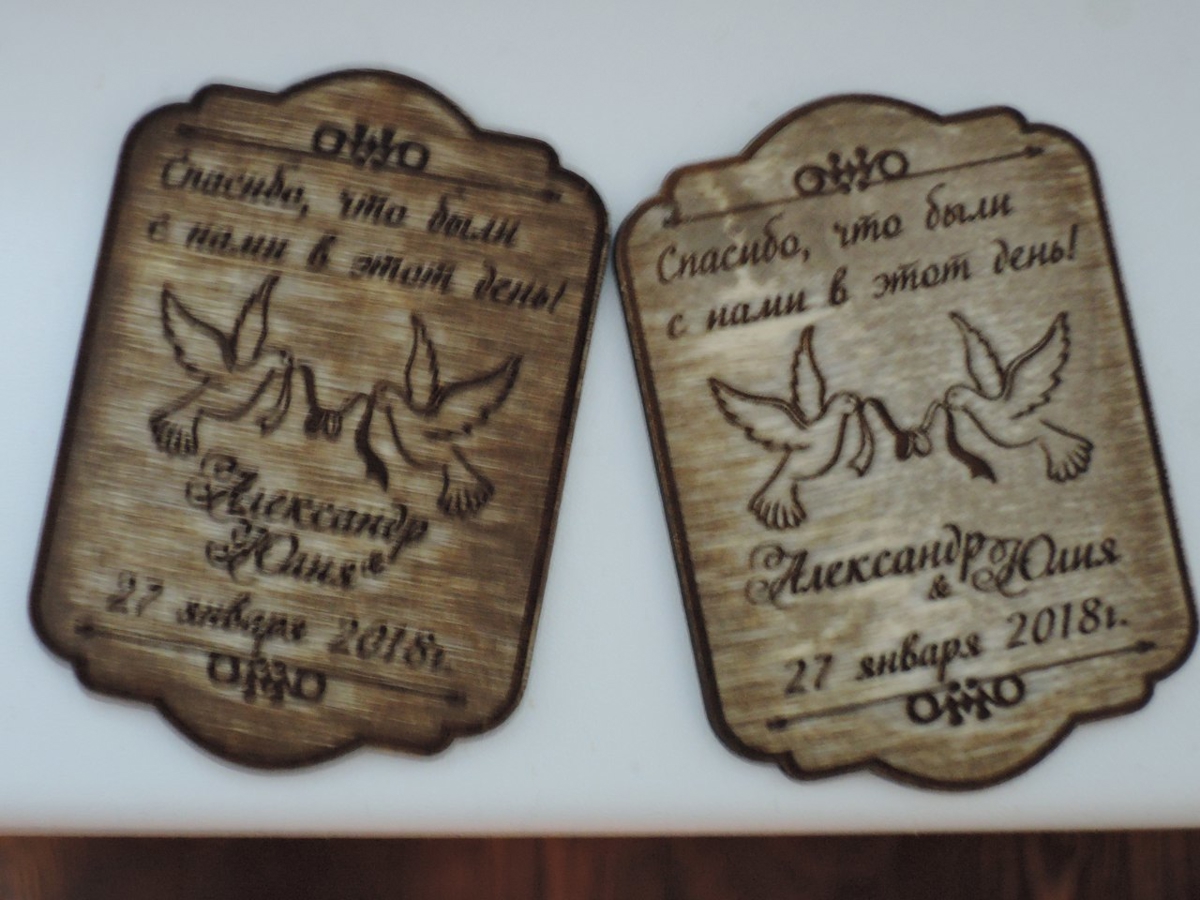 Спасибо, что были
с нами в этот день!
Александр
Юлия &
27 января 2018г.
Спасибо, что были
с нами в этот день!
Александр & Юлия
27 января 2018г.